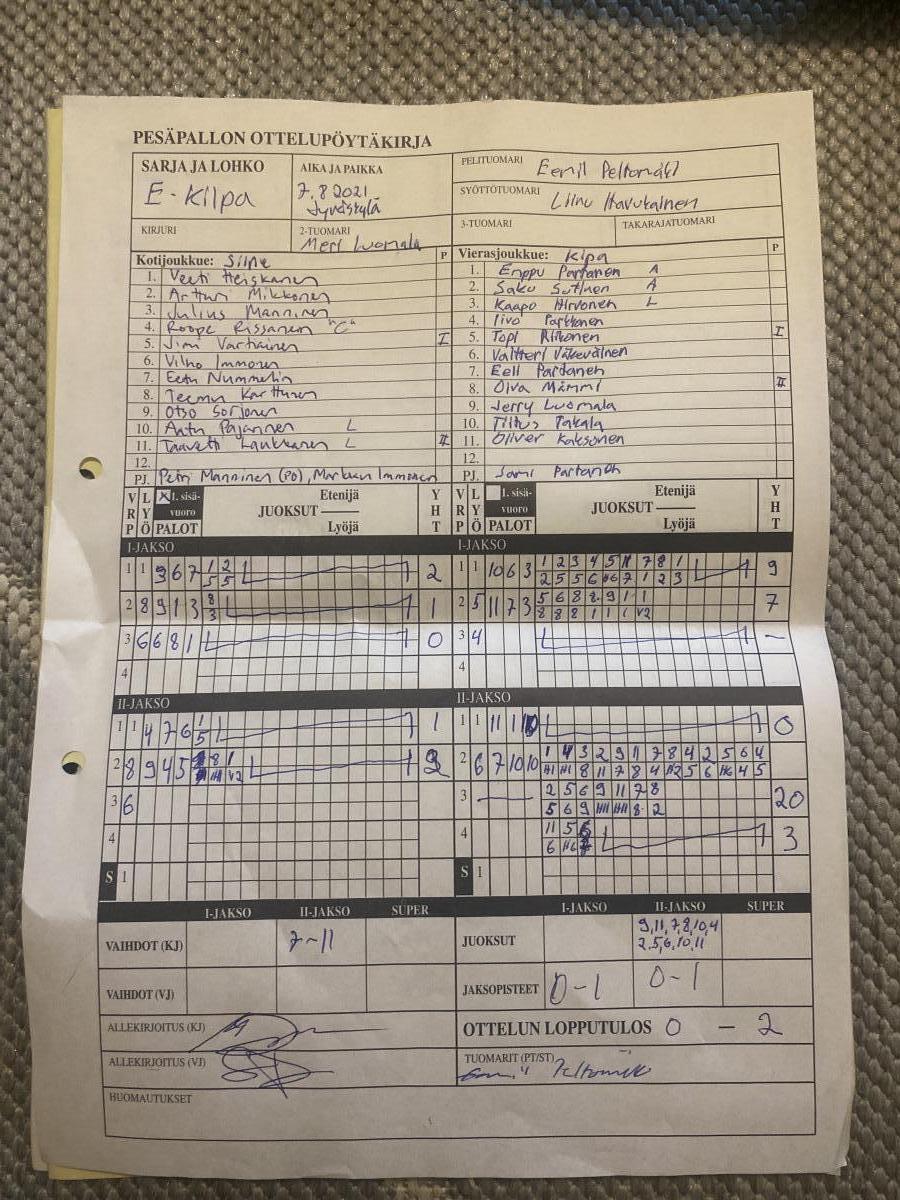 PESÄPALLON OTTELUPÖYTÄKIRJA
SARJA JA LOHKO
E-Kilpa
AIKA JA PAIKKA
7.8 2021
Jyväskylä
PELITUOMARI Eemil
SYÖTTÖTUOMARI Havukainen
KIRJURI
2-TUOMARI
Meri Luomala
3-TUOMARI
TAKARAJATUOMARI
Kotijoukkue: P
1. Veeti Heiskanen
2. Artturi Mikkonen
3. Julius Manninen
4. Roope Rissanen "C"
5. Jimi Vartiainen I
6. Vilho Immonen
7. Eetu Nummelin
8. Teemu Karttunen
9. Otso Sorjonen
10. Antti Pajarinen L
11. Taavetti Laukkanen L II
12.
PJ. Petri Manninen (PO), Markku Immonen
Vierasjoukkue: Kipa P
1. Enppu Partanen A
2. Saku Sutinen A
3. Kaapo Hirvonen L
4. Iivo Parkkonen
5. Topi I
6. Valtteri Väkeväinen
7. Eeli Partanen
8. Oiva Mämmi II
9. Jerry Luomala
10. Tiitus Takala
11. Oliver Kaksonen
12.
PJ. Jami Partanen
V R P
L Y Ö
X 1. sisä-vuoro
PALOT
Etenijä
JUOKSUT
Lyöjä
Y H T
V R P
L Y Ö
1. sisä-vuoro
PALOT
Etenijä
JUOKSUT
Lyöjä
Y H T
I-JAKSO
1 1 3 6 7 1 2 2
5 5
2 8 9 1 3 8 1
3
3 6 6 8 1 0
4
I-JAKSO
1 1 10 6 3 1 2 3 4 5 11 7 8 1 9
2 5 5 6 H6 7 1 2 3
2 5 11 7 3 5 6 8 8 9 1 1 7
8 8 8 1 1 1 V2
3 4 –
4
II-JAKSO
1 1 4 7 6 1 1
5
2 8 9 4 5 8 1
V2
3 6
4
S 1
II-JAKSO
1 1 11 1 0
2 6 7 10 10 1 4 3 2 9 11 7 8 4 2 5 6 4
8 11 7 8 4 5 6 H6 4 5
3 2 5 6 9 11 7 8 20
5 6 9 8 2
4 11 5 3
6 H6
S 1
I-JAKSO II-JAKSO SUPER
VAIHDOT (KJ) 7-11
VAIHDOT (VJ)
I-JAKSO II-JAKSO SUPER
JUOKSUT 9,11,7,8,10,4
2,5,6,10,11
JAKSOPISTEET 0-1 0-1
ALLEKIRJOITUS (KJ)
ALLEKIRJOITUS (VJ)
OTTELUN LOPPUTULOS 0 – 2
TUOMARIT (PT/ST)
HUOMAUTUKSET